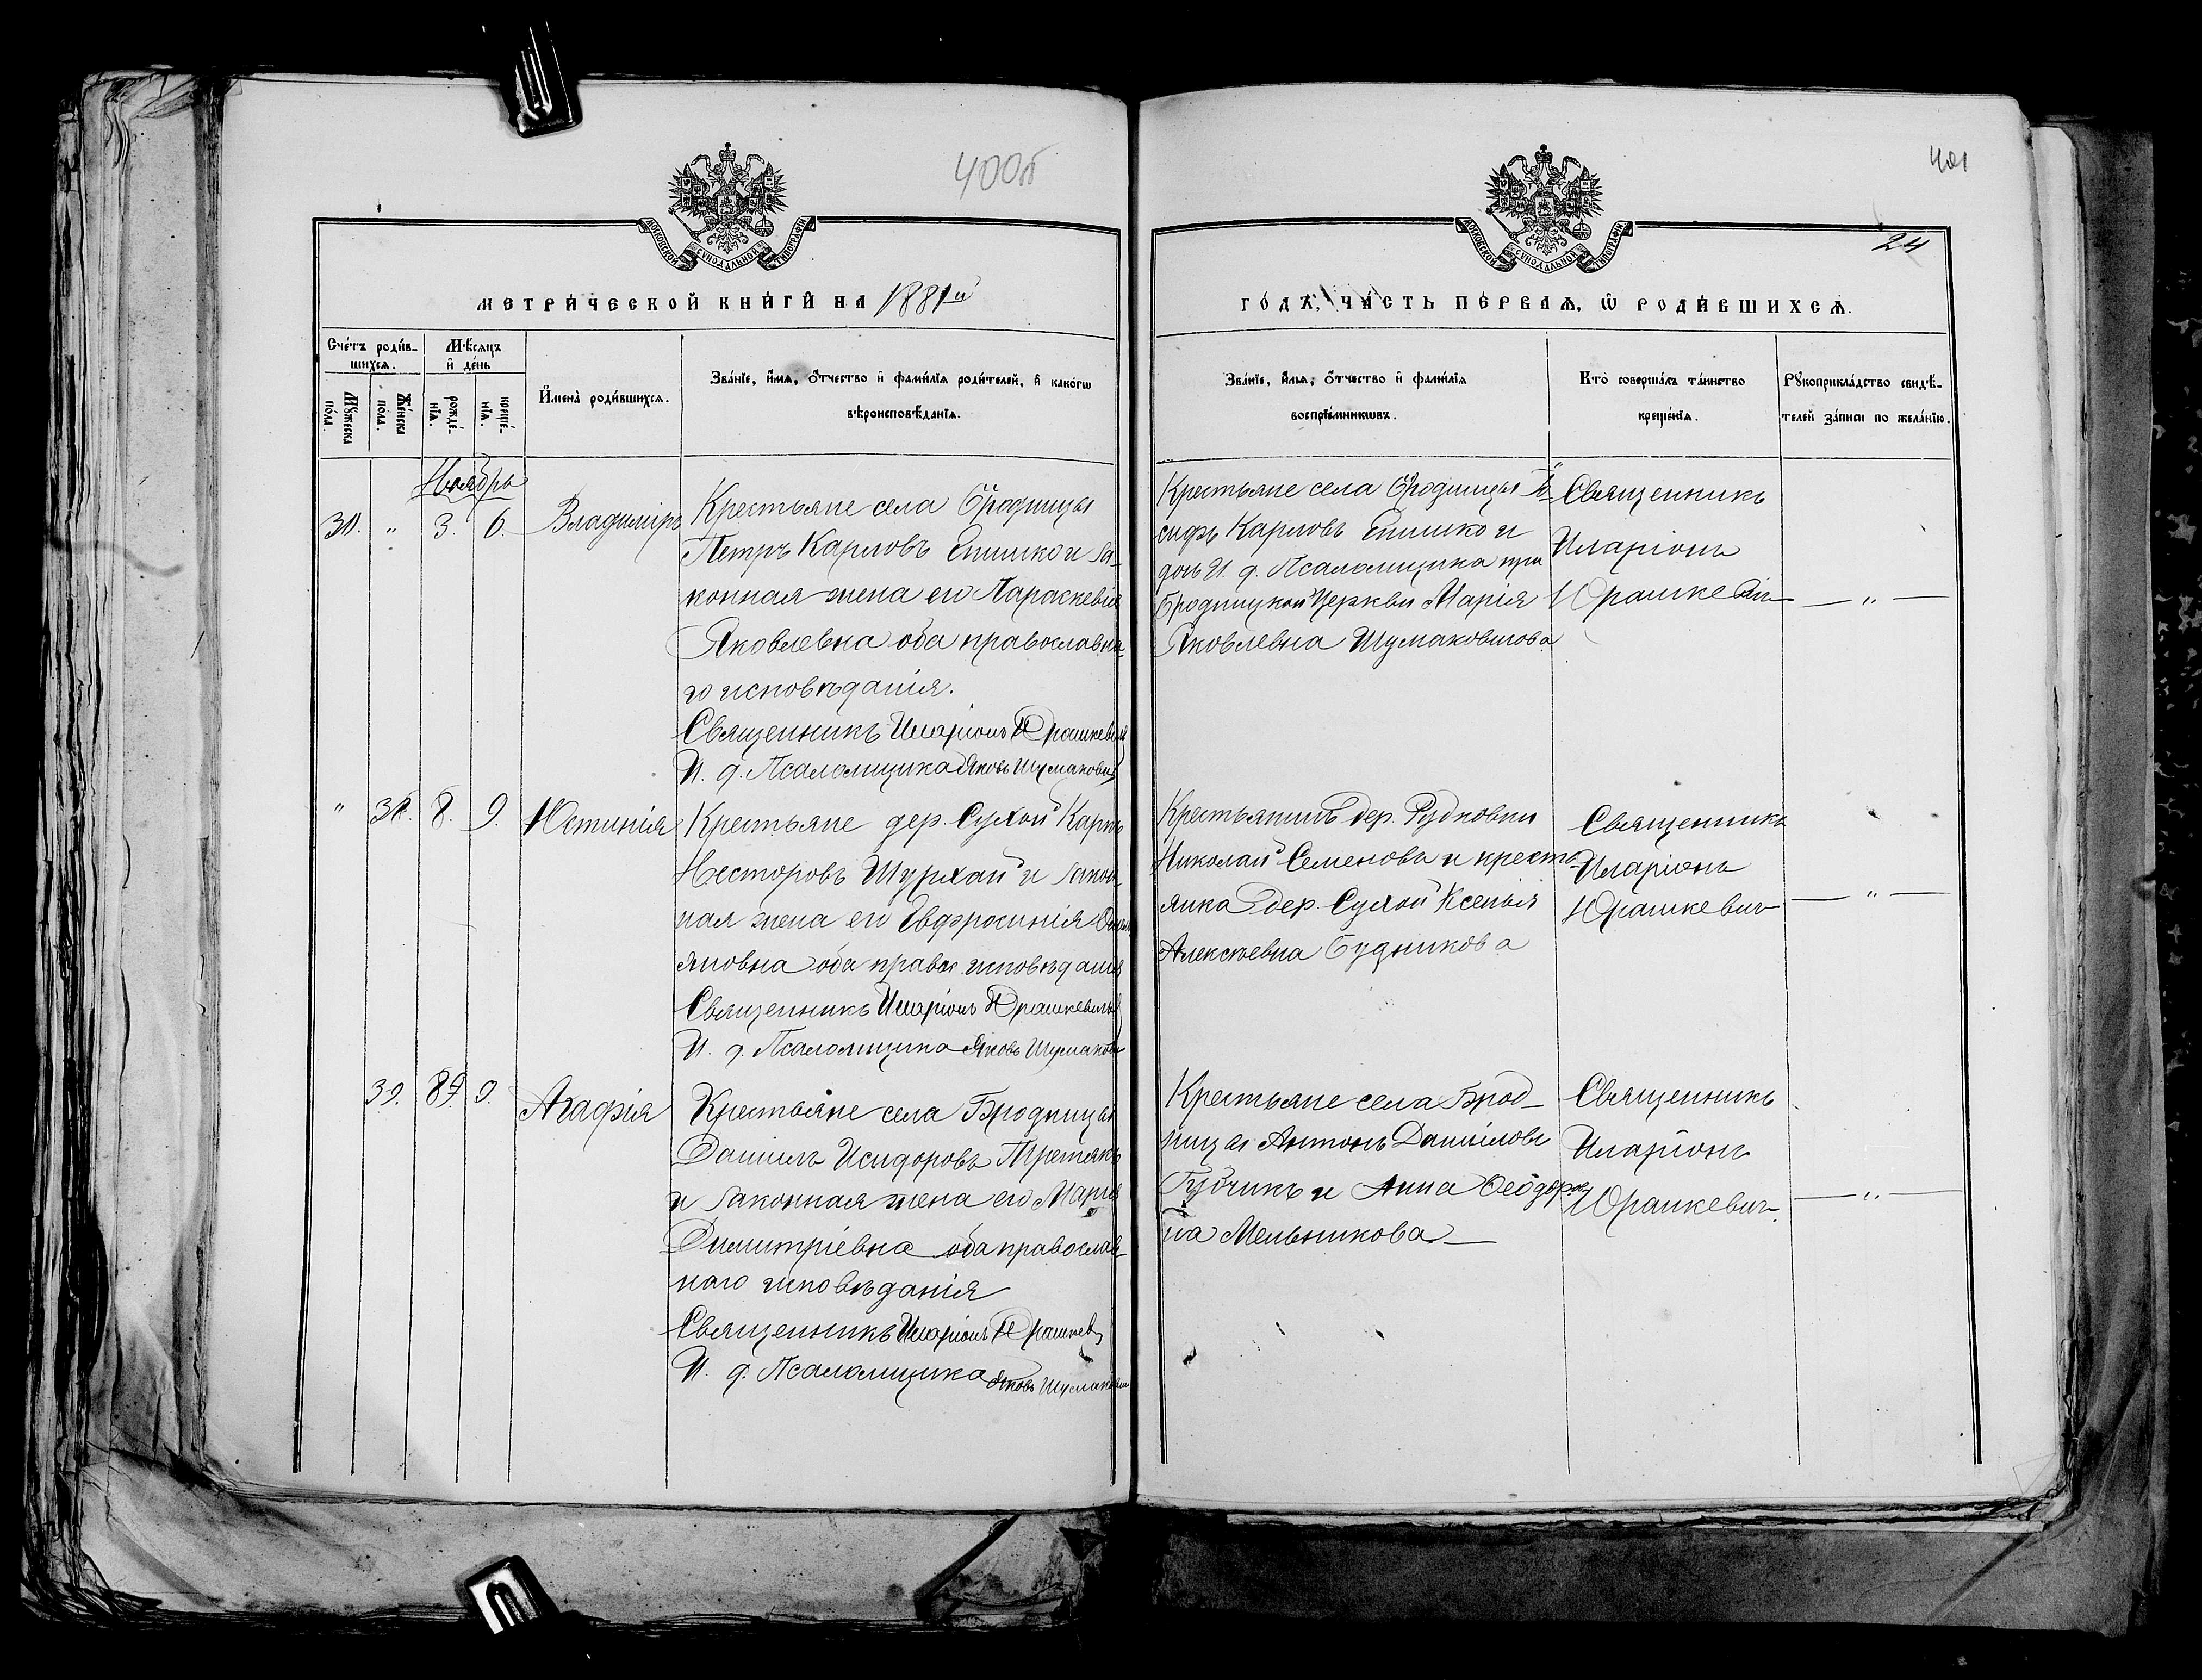 400б
МОСКОВСКОЙ СѴНОДАЛЬНОЙ ТИПОГРАФІИ
МЕТРИЧЕСКОЙ КНИГИ НА 1881й
Счетъ родив-
шихся.
Мѣсяцъ
и день
Мужеска
пола.
Женска
пола.
рожде-
нія.
креще-
нія.
Имена родившихся.
Званіе, имя, отчество и фамилія родителей, и какогѡ
вѣроисповѣданія.
Ноябрь
30. " 3. 6. Владиміръ
Крестьяне села Бродницы
Петръ Карловъ Епишко и за-
конная жена его Параскевія
Яковлевна оба православна-
го исповѣданія.
Священникъ Иларіонъ Юрашкевичъ
И. д. Псаломщика Яковъ Шумаковичъ
" 38. 8. 9. Юстинія
Крестьяне дер. Сухой Карпъ
Несторовъ Шурхай и закон-
ная жена его Евфросинія
яновна оба правос. исповѣданія
Священникъ Иларіонъ Юрашкевичъ
И. д. Псаломщика Яковъ Шумакови
39. 9. Агафія
Крестьяне села Бродницы
Даніилъ Исидоровъ Третякъ
и законная жена его Марія
Димитріевна оба православ-
наго исповѣданія
Священникъ Иларіонъ Юрашкев
И. д. Псаломщика Яковъ Шумакови
401
МОСКОВСКОЙ СѴНОДАЛЬНОЙ ТИПОГРАФІИ
24
ГОДЪ, ЧАСТЬ ПЕРВАЯ, Ѡ РОДИВШИХСЯ.
Званіе, имя, отчество и фамилія
воспріемниковъ.
Кто совершалъ таинство
крещенія.
Рукоприкладство свидѣ-
телей записи по желанію.
Крестьяне села Бродницы Іо-
сифъ Карловъ Епишко и
дочь И. д. Псаломщика при
Бродницкой Церкви Марія
Яковлевна Шумаковичова
Священникъ
Иларіонъ
Юрашкевичъ
— " —
Крестьянинъ дер. Рудковки
Николай Семеновъ и кресть-
янка дер. Сухой Ксенія
Алексѣевна Будникова
Священникъ
Иларіонъ
Юрашкевичъ
— " —
Крестьяне села Брод-
ницы Антонъ Даніиловъ
Губчикъ и Анна Ѳеодоро
на Мельникова —
Священникъ
Иларіонъ
Юрашкевичъ.
— " —